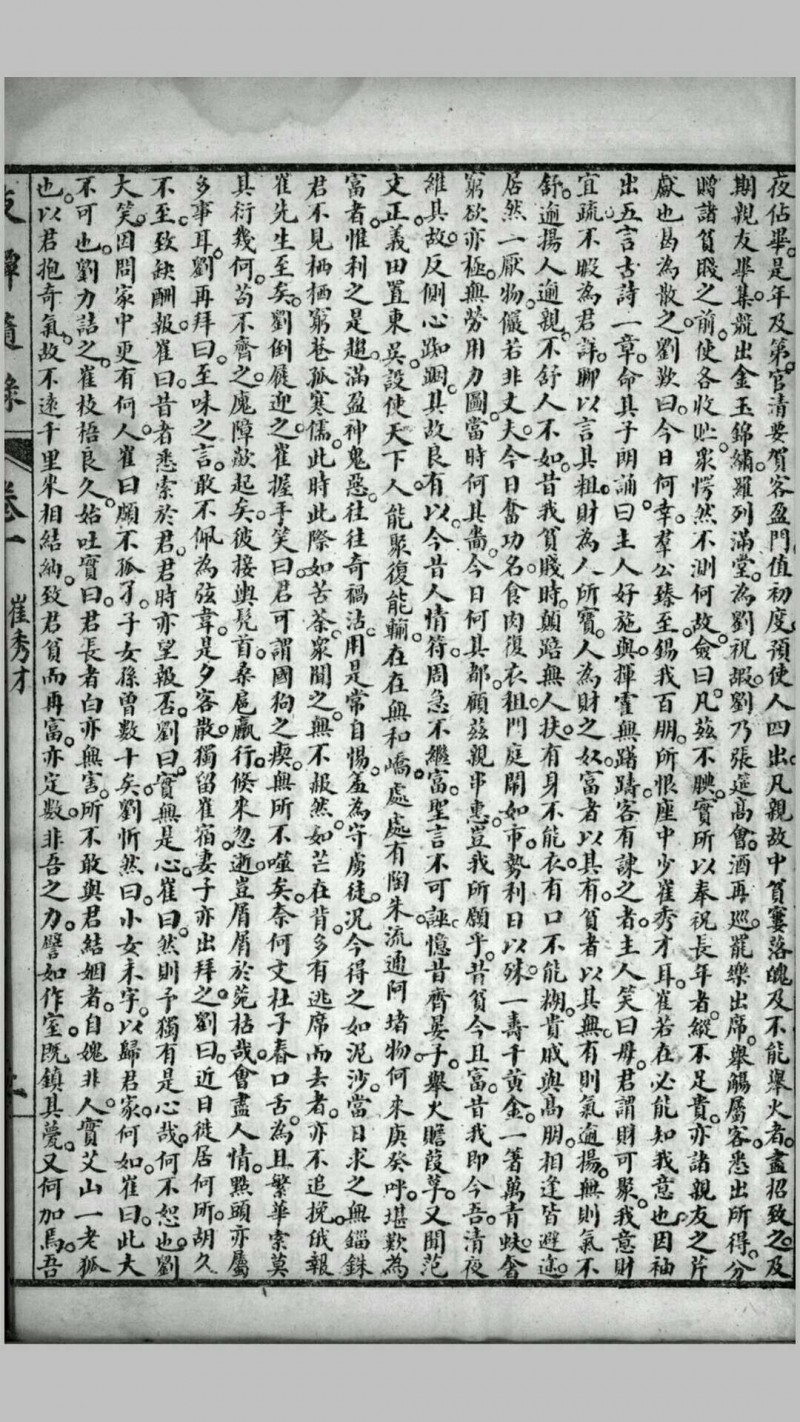 夜佔畢。是年及第。官清要。賀客盈門。值初度。預使人四出。凡親故中貧窶落魄及不能舉火者。盡招致之。及
期。親友畢集。競出金玉錦繡。羅列滿堂。為劉祝嘏。劉乃張筵高會。酒再巡。罷樂出席。舉觴屬客。悉出所得。分
贈諸貧賤之前。使各收貯。眾愕然不測何故。僉曰。凡茲不腆。實所以奉祝長年者。縱不足貴。亦諸親友之片
獻也。曷為散之。劉歎曰。今日何幸。羣公臻至。錫我百朋。所恨座中少崔秀才耳。崔若在。必能知我意也。因袖
出五言古詩一章。命其子朗誦曰。主人好施與。揮霍無躊躇。客有諫之者。主人笑曰毋。君謂財可聚。我意財
宜疏。不暇為君詳。聊以言其粗。財為人所寶。人為財之奴。富者以其有。貧者以其無。有則氣逾揚。無則氣不
舒。逾揚人逾親。不舒人不如。昔我貧賤時。顛踣無人扶。有身不能衣。有口不能糊。貴戚與高朋。相逢皆避迹。
居然一厭物。儼若非丈夫。今日奮功名。食肉復衣租。門庭鬧如市。勢利日以殊。一壽千黃金。一箸萬青蚨。奢
窮欲亦極。無勞用力圖。當時何其嗇。今日何其都。顧茲親串惠。豈我所願乎。昔貧今且富。昔我即今吾。清夜
維其故。反側心踟躕。其故良有以。今昔人情符。周急不繼富。聖言不可誣。憶昔齊晏子。舉火贍葭莩。又聞范
文正。義田置東吳。設使天下人。能聚復能輸。在在無和嶠。處處有陶朱。流通阿堵物。何來庚癸呼。堪歎為
富者。惟利之是趨。滿盈神鬼惡。往往奇禍沽。用是常自惕。羞為守虜徒。況今得之如泥沙。當日求之無錙銖。
君不見栖栖窮巷孤寒儒。此時此際如苦荼。眾聞之。無不赧然。如芒在背。多有逃席而去者。亦不追挽。俄報
崔先生至矣。劉倒屣迎之。崔握手笑曰。君可謂國狗之瘈。無所不噬矣。奈何文杜子春口舌。為且繁華索莫。
具衍幾何。苟不齊之。魔障欻起矣。彼接輿髠首。桑扈臝行。倏來忽逝。豈屑屑於菀枯哉。會盡人情。點頭亦屬
多事耳。劉再拜曰。至味之言。敢不佩為弦韋。是夕客散。獨留崔宿。妻子亦出拜之。劉曰。近日徙居何所。胡久
不至。致缺酬報。崔曰。昔者悉索於君。君時亦望報否。劉曰。實無是心。崔曰。然則予獨有是心哉。何不恕也。劉
大笑。因問家中更有何人。崔曰。頗不孤孑。子女孫曾數十矣。劉忻然曰。小女未字。以歸君家何如。崔曰。此大
不可也。劉力詰之。崔枝梧良久。始吐實曰。君長者。白亦無害。所不敢與君結姻者。自媿非人。實艾山一老狐
也。以君抱奇氣。故不遠千里來相結納。致君貧而再富。亦定數。非吾之力。譬如作室。既鎮其甍。又何加焉。吾
夜譚隨錄 卷一 崔秀才